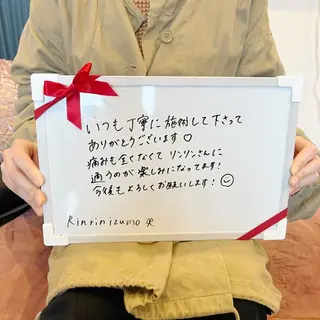 いつも丁寧に施術して下さって
ありがとうございます♡
痛みも全くなくて リンリンさんに
通うのが楽しみになってます!
今後もよろしくお願いします! ☺
Rinrin izumo